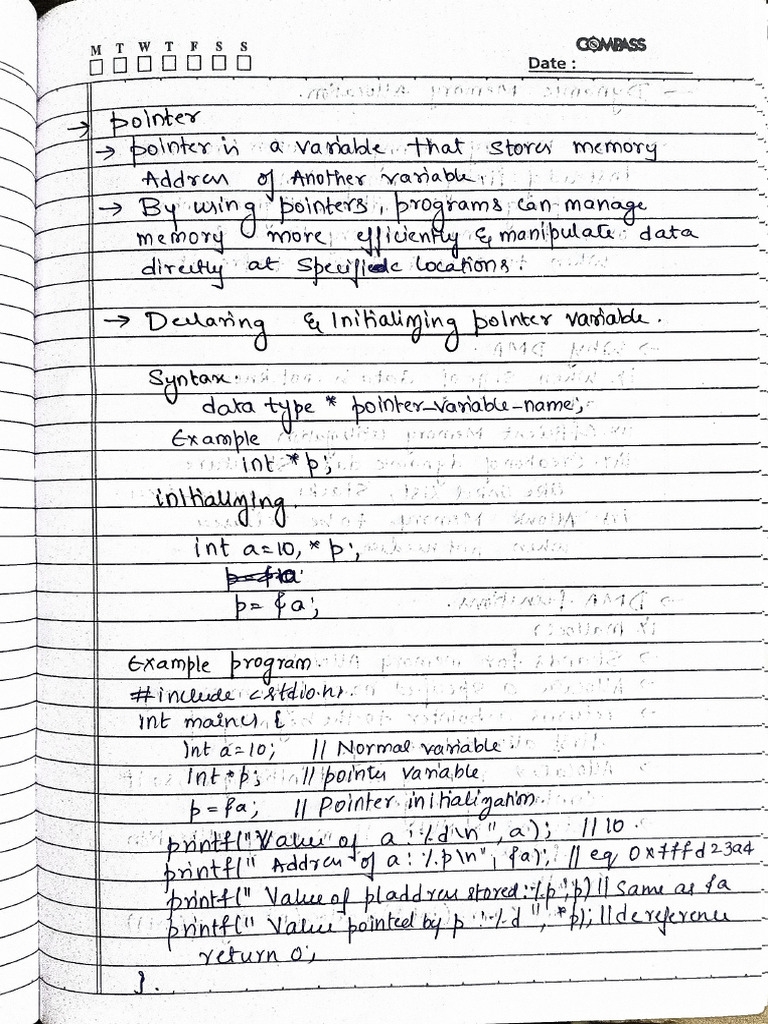 M T W T F S S
COMPASS
Date :
→ pointer
→ pointer is a variable that stores memory
Address of Another variable.
→ By using pointers, programs can manage
memory more efficiently & manipulate data
directly at specific locations.
→ Declaring & Initializing pointer variable.
Syntax
data type * pointer-variable-name;
Example
int *p;
initializing.
int a=10, *p;
p = &a;
Example program
#include <stdio.h>.
int main() {
int a=10; // Normal variable
int *p; // pointer variable
p = &a; // Pointer initialization
printf("Value of a : %d\n", a); // 10.
printf(" Address of a : %p\n", &a); // eq 0x7ffd23a4
printf(" Value of p(address stored: %p", p) // same as &a
printf(" Value pointed by p : %d ", *p); // dereference
return 0;
}.